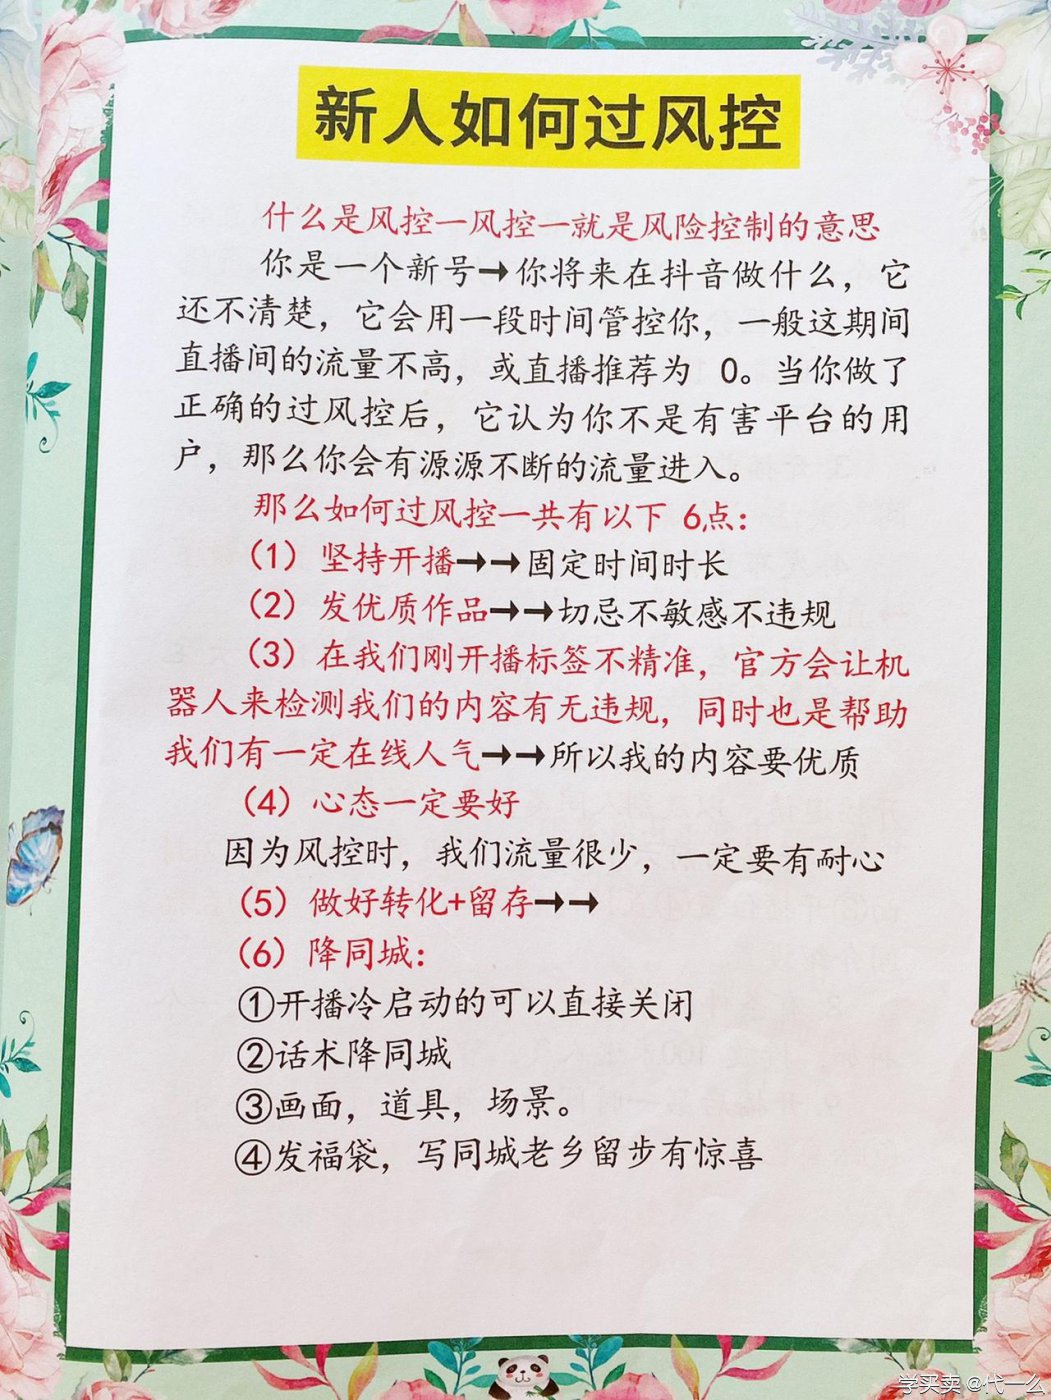 新人如何过风控
什么是风控一风控一就是风险控制的意思
你是一个新号→你将来在抖音做什么，它
还不清楚，它会用一段时间管控你，一般这期间
直播间的流量不高，或直播推荐为 0。当你做了
正确的过风控后，它认为你不是有害平台的用
户，那么你会有源源不断的流量进入。
那么如何过风控一共有以下 6点：
（1）坚持开播→→固定时间时长
（2）发优质作品→→切忌不敏感不违规
（3）在我们刚开播标签不精准，官方会让机
器人来检测我们的内容有无违规，同时也是帮助
我们有一定在线人气→→所以我的内容要优质
（4）心态一定要好
因为风控时，我们流量很少，一定要有耐心
（5）做好转化+留存→→
（6）降同城：
①开播冷启动的可以直接关闭
②话术降同城
③画面，道具，场景。
④发福袋，写同城老乡留步有惊喜
学买卖 @代一么